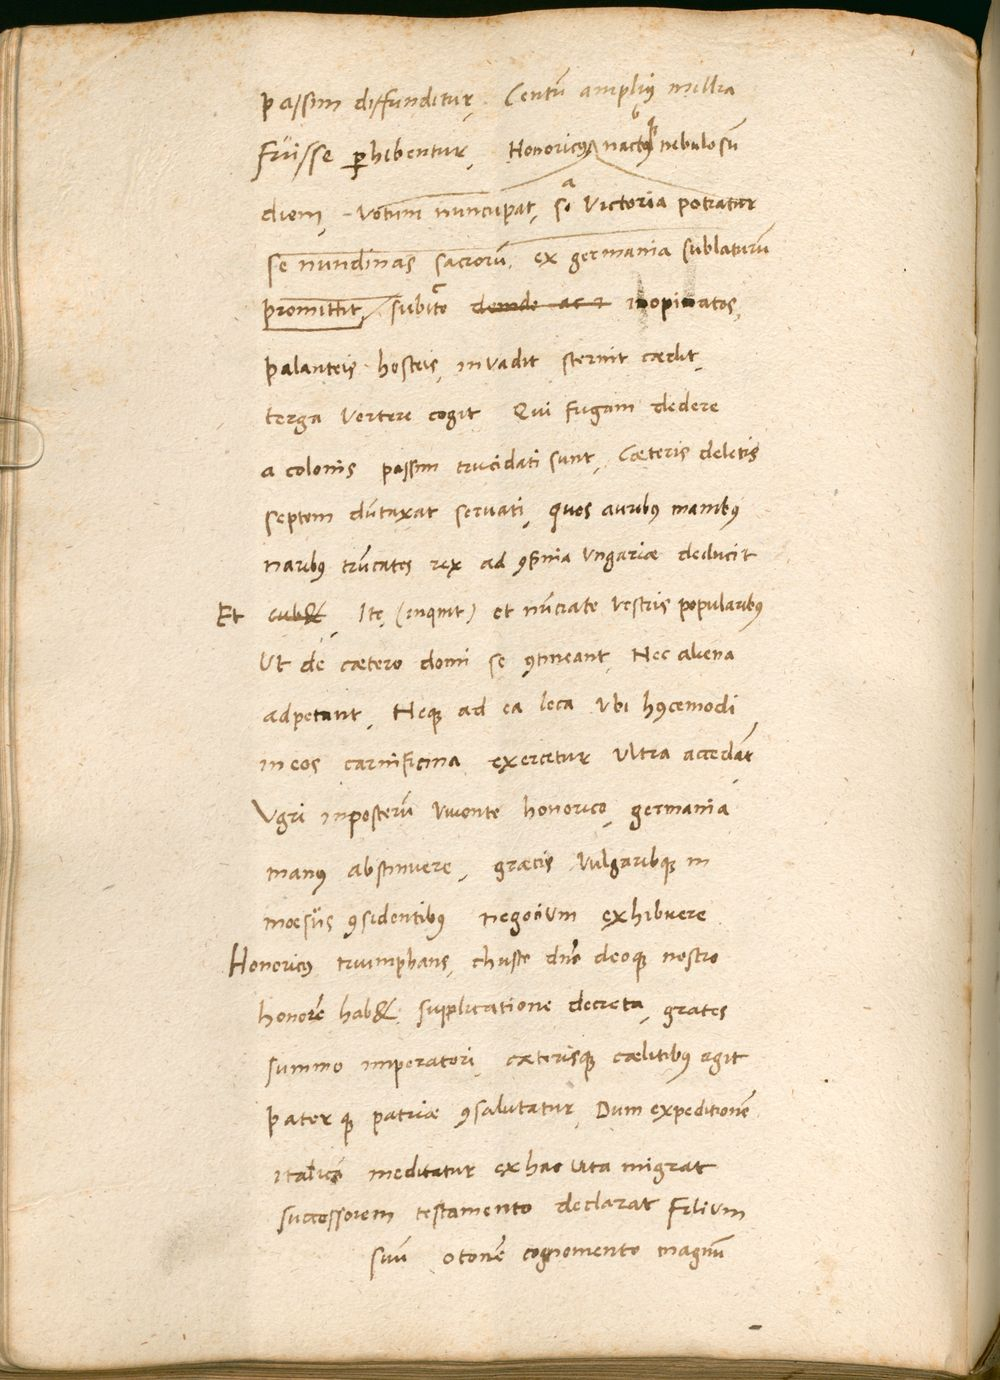 passim diffunditur. Centū ampliꝰ millia
Fuisse ꝑhibentur, Honoricꝰ nactꝰ nebulosū
b
diem, votum nuncupat, si Victoria potiatur
a
se nundinas sacrorū, ex germania sublaturū
promittit, subito deinde ac inopinatos,
c
palanteis hosteis, invadit sternit cædit,
terga Vertere cogit Qui Fugam dedere
a colonis passim trucidati sunt, Cæteris deletis
septem dūtaxat seruati, quos auribꝰ manibꝰ
naribꝰ trūcatos rex ad ꝯfinia Vngariæ deducit
Et cub& Ite, (inquit) et nūciate Vestris popularibꝰ
Vt de cætero domi se ꝯtineant, Nec aliena
adpetant, Neqꝫ ad ea loca Vbi hꝰcemodi
in eos carnificina exercetur Vltra accedāt
Vgri inposterū Viuente honorico, germania
manꝰ abstinuere, græcis Vulgaribqꝫ in
moesiis ꝯsidentibꝰ negocium exhibuere
Honoricꝰ triumphans, christo dn̄o deoqꝫ nostro
honorē hab& supplicatione decreta, grates
summo imperatori, cæterisqꝫ cælitibꝰ agit
Pater qꝫ patriæ ꝯsalutatur, Dum expeditionē
italicā meditatur ex hac vita migrat
successorem testamento declarat Filium
suū otonē cognomento magnū